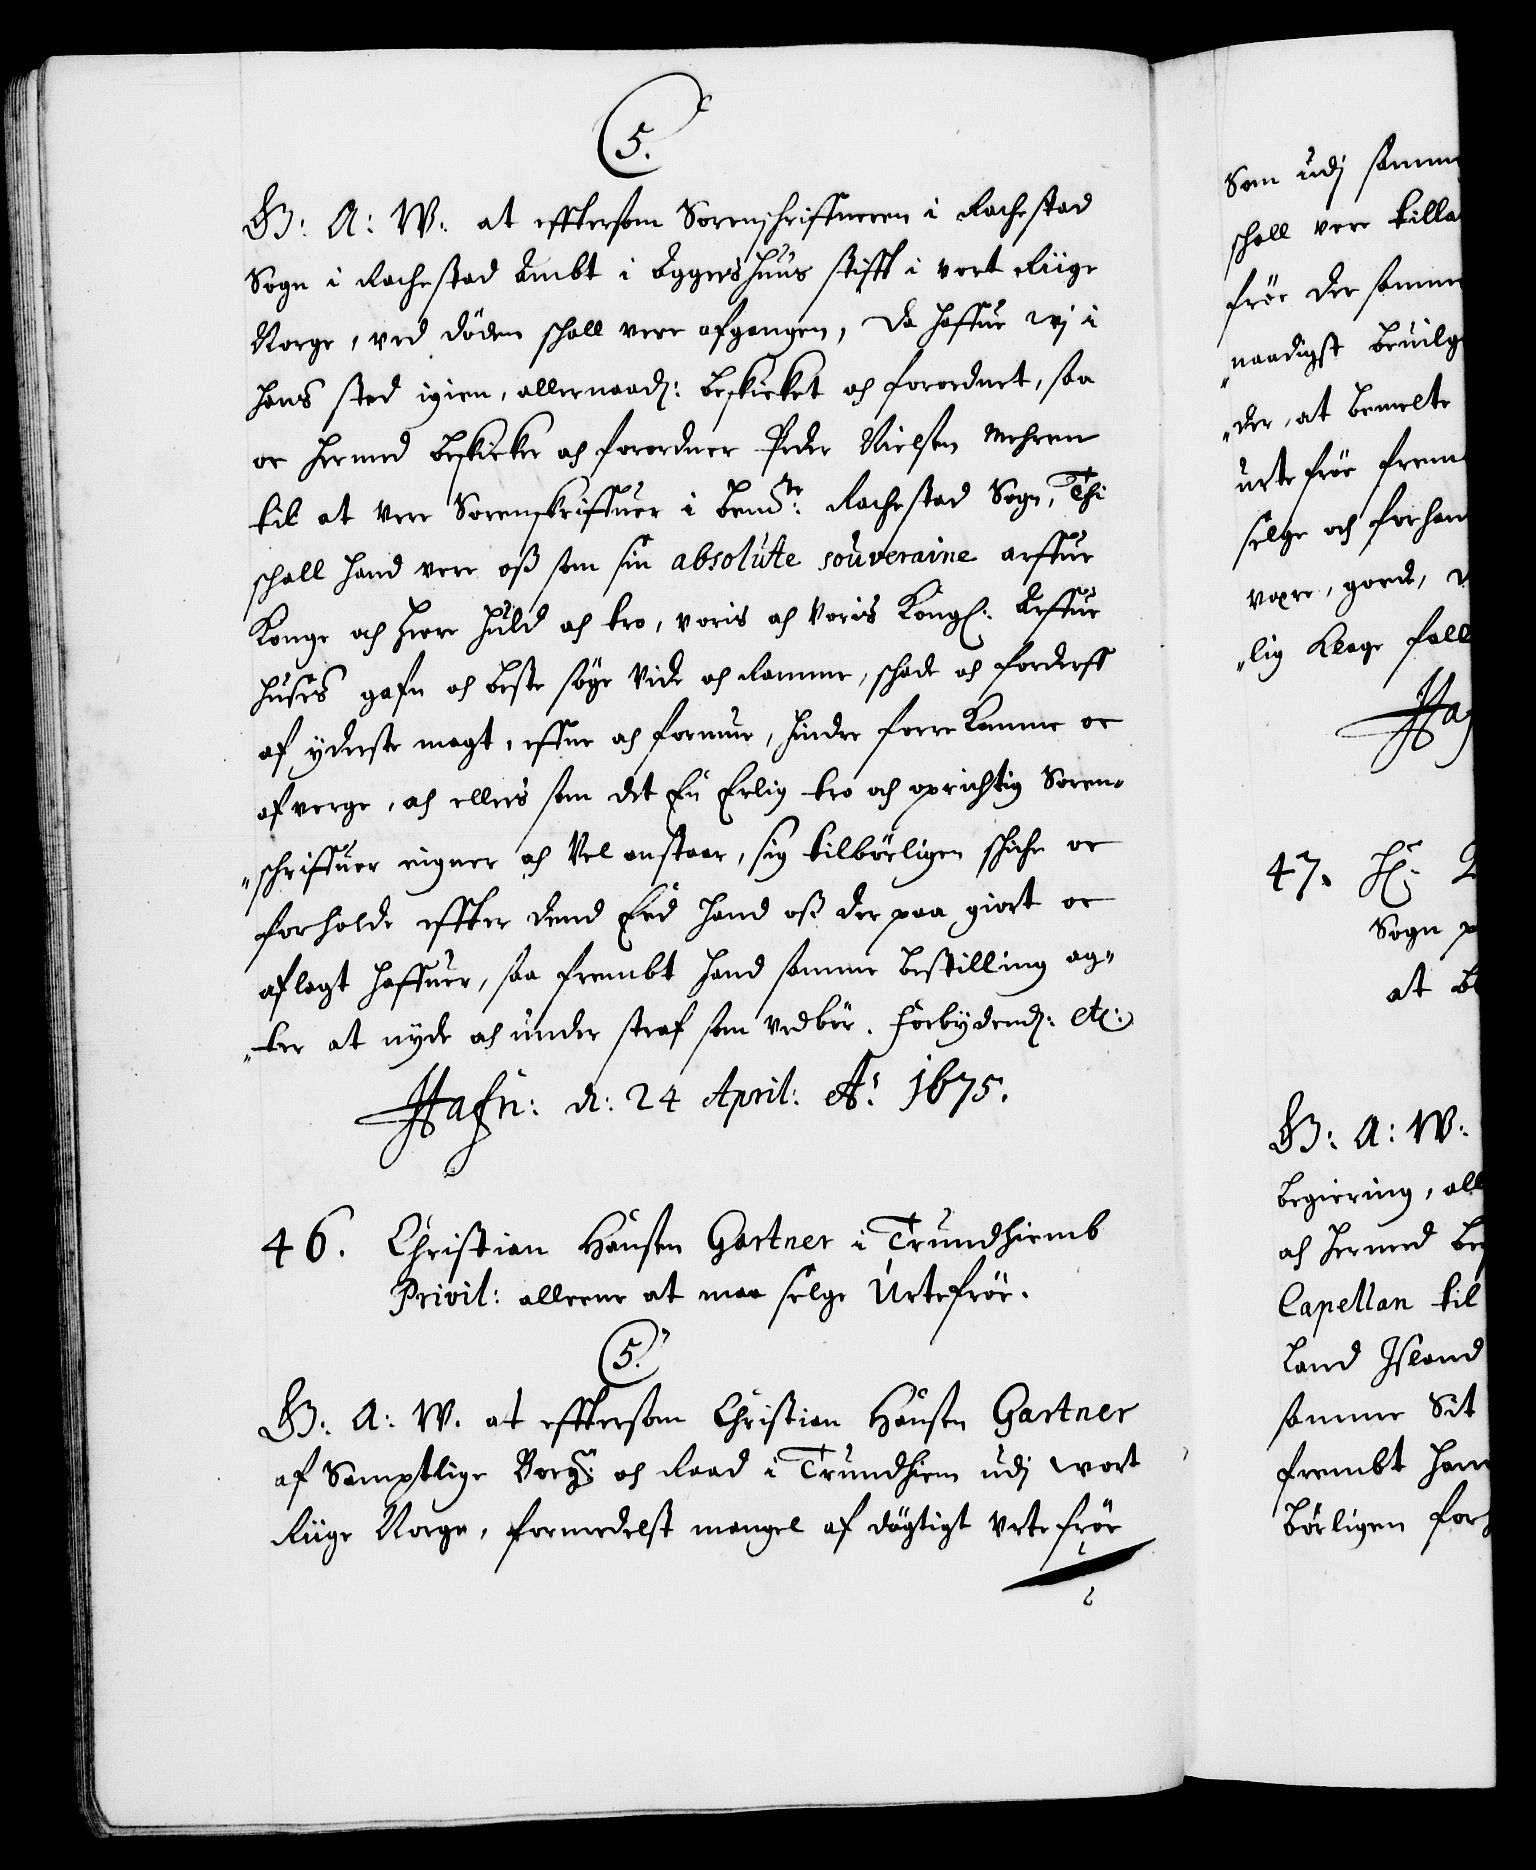 5.
G: A: W: at effttersom Sorenschriffueren i Rachestad
Sogn i Rachestad Ambt i Aggershuus stifft i vort Riige
Norge, ved döden schall vere afgangen, Da haffue wj i
hans sted igien, allernaad: beskicket och forordnet, saa
oc hermed beskicker och forordner Peder Nielsen Mehren
til at vere Sorenskriffuer i bemte: Rachestad Sogn, Thi
schall hand vere oß som sin absolute souveraine arffue
Konge och Herre huld och tro, voris och Voris Kongl: Arffue
huses gafn och beste söge Vide och Ramme, schade och forderff
af yderste magt, effne och formue, hindre forrekomme oc
afverge, och ellers som det En Erlig tro och oprichtig Soren-
"schriffuer eigner och Vel anstaar, sig tilbörligen schicke oc
forholde effter dend Eed hand oß der paa giort oc
aflagt haffuer, saa frembt hand samme bestilling ag"
"ter at nyde och under straf som vedbör. Forbydend: etc:
Hafn: d: 24 April: Ao: 1675.
46. Christian Hansen Gartner i Trundhiemb
Privil: alleene at maa selge Urtefröe.
5.
G: A: W. at effttersom Christian Hansen Gartner
af Samptlige Borgr: och Raad i Trundhiem udj wort
Riige Norge, formedelst mangel af dögtigt Urtefröe
Som udj samm
schall vere tilla
fröe der samm
naadigst bevilg
"der, at bemelte
urte fröe frem
selge och forhan
vaxre, goedt,
"lig Klage fall
Haf
47. Hr:
Sogn p
at be
G: A: W:
begiering, all
och hermed be
Capellan til
Land Island
samme Sit
frembt han
börligen forh